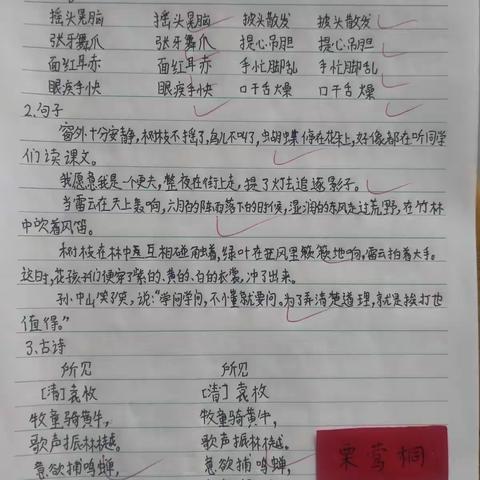 摇头晃脑 摇头晃脑 披头散发 披头散发
张牙舞爪 张牙舞爪 提心吊胆 提心吊胆
面红耳赤 面红耳赤 手忙脚乱 手忙脚乱
眼疾手快 眼疾手快 口干舌燥 口干舌燥
2.句子
窗外十分安静,树枝不摇了,鸟儿不叫了,蝴蝶停在花朵上,好像都在听同学
们读课文。
我愿意我是一个更夫,整夜在街上走,提了灯去追逐影子。
当雷云在天上轰响,六月的阵雨落下的时候,湿润的东风走过荒野,在竹林
中吹着风笛。
树枝在林中互相碰触着,绿叶在狂风里簌簌地响,雷云拍着大手。
这时,花孩子们便穿了紫的、黄的、白的衣裳,冲了出来。
孙中山笑了笑,说:“学问学问,不懂就要问。为了弄清楚道理,就是挨打也
值得。”
3.古诗
所见 所见
[清]袁枚 [清]袁枚
牧童骑黄牛, 牧童骑黄牛,
歌声振林樾。 歌声振林樾。
意欲捕鸣蝉, 意欲捕鸣蝉,
栗莺桐